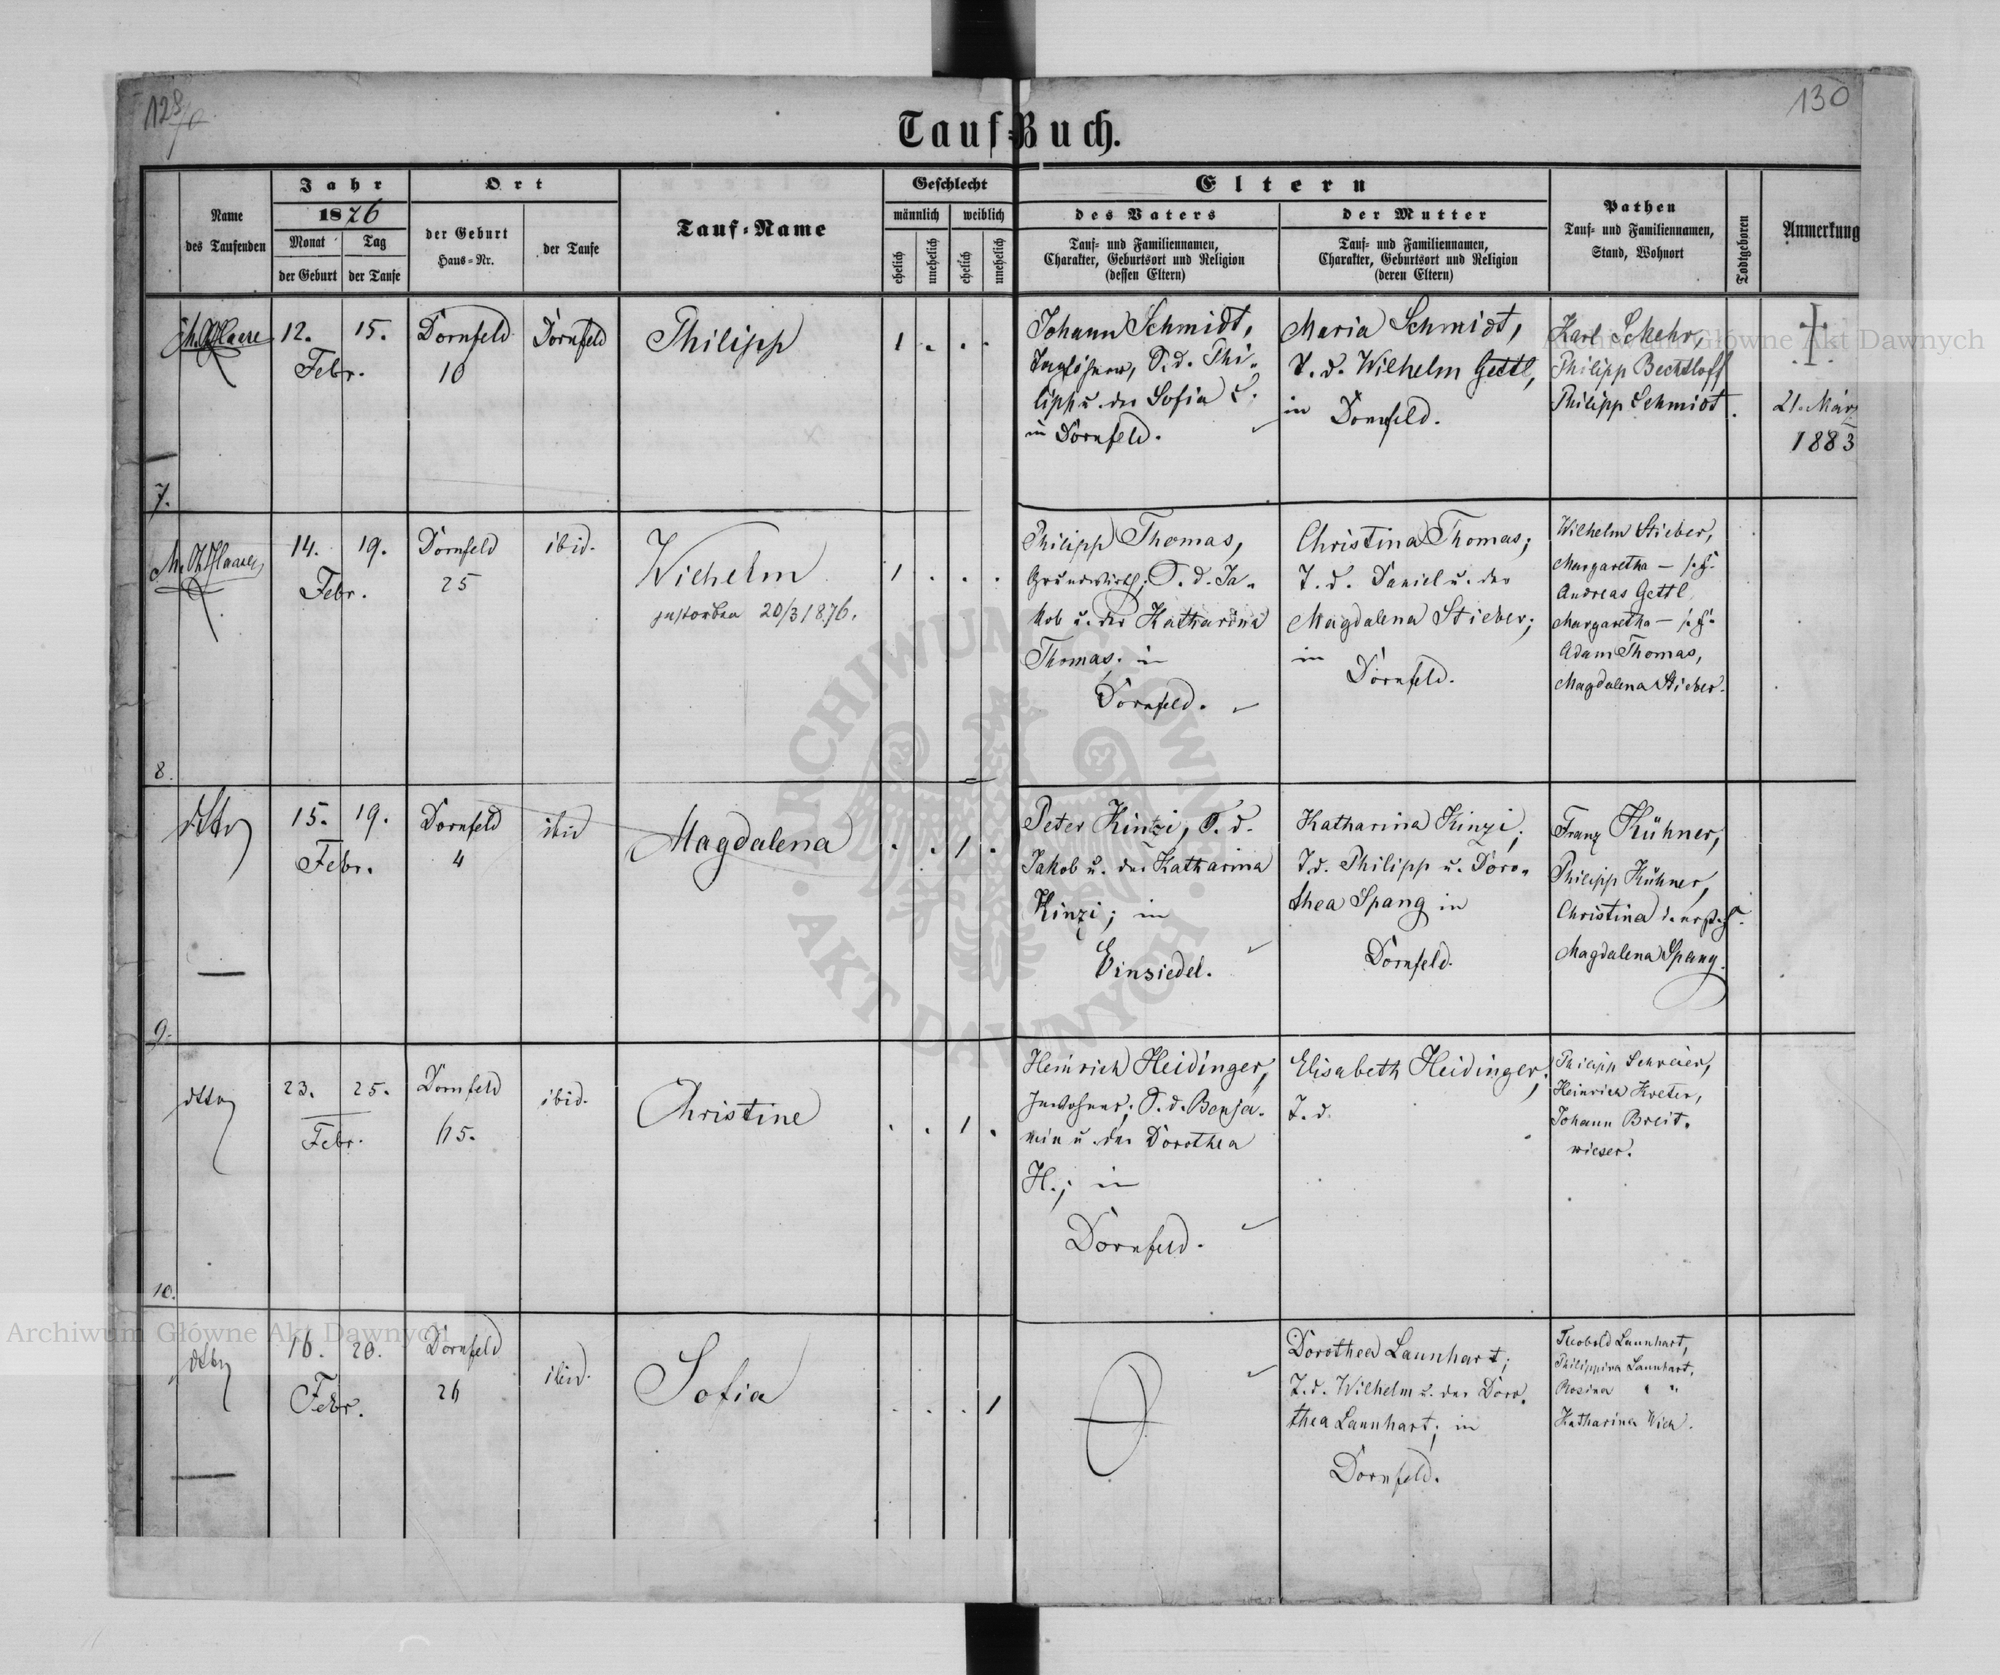 128/0
130
Tauf-Buch.
Name
des Taufenden
Jahr
1876
Monat
der Geburt
Tag
der Taufe
Ort
der Geburt
Haus-Nr.
der Taufe
Tauf-Name
Geschlecht
männlich
weiblich
ehelich
unehelich
ehelich
unehelich
Eltern
des Vaters
Tauf- und Familiennamen,
Charakter, Geburtsort und Religion
(dessen Eltern)
der Mutter
Tauf- und Familiennamen,
Charakter, Geburtsort und Religion
(deren Eltern)
Pathen
Tauf- und Familiennamen,
Stand, Wohnort
Todtgeboren
Anmerkung
12. 15.
Febr.
Dornfeld
10
Dornfeld
Philipp
1 . . .
Johann Schmidt,
Taglöhner, S. d. Phi-
lipp u. der Sofia S.
in Dornfeld.
Maria Schmidt,
T. d. Wilhelm Gettl,
in Dornfeld.
Karl Schehr,
Philipp Bechtloff
Philipp Schmidt.
†
21. März
1883
7.
14. 19.
Febr.
Dornfeld
25
ibid.
Wilhelm
gestorben 20/3 1876.
1 . . .
Philipp Thomas,
Grundwirth; S. d. Ja-
kob u. der Katharina
Thomas; in
Dornfeld.
Christina Thomas;
T. d. Daniel u. der
Magdalena Stieber;
in
Dornfeld.
Wilhelm Stieber,
Margaretha —
Andreas Gettl,
Margaretha —
Adam Thomas,
Magdalena Stieber.
8.
dtto
15. 19.
Febr.
Dornfeld
4
ibid
Magdalena
. . 1 .
Peter Kintzi, S. d.
Jakob u. der Katharina
Kinzi; in
Einsiedel.
Katharina Kinzi;
T. d. Philipp u. Doro-
thea Spang in
Dornfeld.
Franz Kühner,
Philipp Kühner,
Christina
Magdalena Spang.
9.
dtto
23. 25.
Febr.
Dornfeld
65.
ibid.
Christine
. . 1 .
Heinrich Heidinger,
Inwohner; S. d. Benja-
min u. der Dorothea
H.; in
Dornfeld.
Elisabeth Heidinger;
T. d.
Philipp Schreier,
Heinrich Kreter,
Johann Breit-
wieser.
10.
dtto
16. 20.
Febr.
Dornfeld
26
ibid.
Sofia
. . . 1
Dorothea Launhart;
T. d. Wilhelm u. der Doro-
thea Launhart; in
Dornfeld.
Theobald Launhart,
Philippina Launhart,
Rosina " "
Katharina
Archiwum Główne Akt Dawnych
Archiwum Główne Akt Dawnych
ARCHIWUM GŁÓWNE · AKT DAWNYCH ·